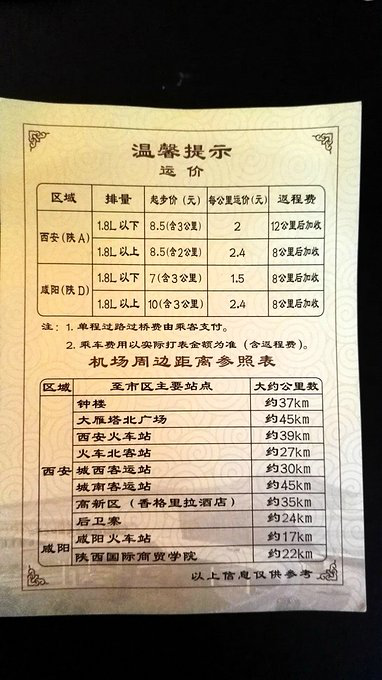 温馨提示
运价
区域 排量 起步价(元) 每公里运价(元) 返程费
西安(陕A) 1.8L以下 8.5(含3公里) 2 12公里后加收
1.8L以上 8.5(含2公里) 2.4 8公里后加收
咸阳(陕D) 1.8L以下 7(含3公里) 1.5 8公里后加收
1.8L以上 10(含3公里) 2.4 8公里后加收
注：1. 单程过路过桥费由乘客支付。
2. 乘车费用以实际打表金额为准（含返程费）。
机场周边距离参照表
区域 至市区主要站点 大约公里数
西安 钟楼 约37km
大雁塔北广场 约45km
西安火车站 约39km
火车北客站 约27km
城西客运站 约30km
城南客运站 约45km
高新区（香格里拉酒店） 约35km
后卫寨 约24km
咸阳 咸阳火车站 约17km
陕西国际商贸学院 约22km
以上信息仅供参考